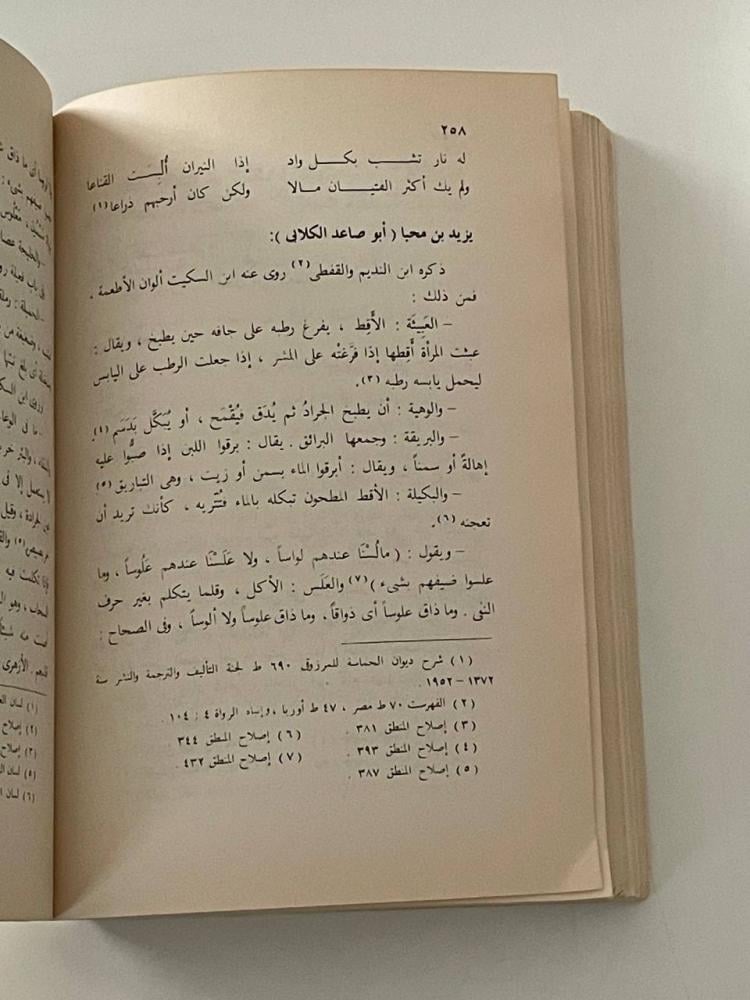 ٢٥٨
له نار تشب بكل واد إذا النيران أُلبِسَت القناعا
ولم يك أكثر الفتيان مالا ولكن كان أرحبهم ذراعا (١)
يزيد بن محيا ( أبو صاعد الكلابى ) :
ذكره ابن النديم والقفطى (٢) روى عنه ابن السكيت ألوان الأطعمة .
فمن ذلك :
– العَبِيثَة : الأَقِط ، يفرغ رطبه على جافه حين يطبخ ، ويقال :
عبثت المرأة أَقِطها إذا فَرَّغَتْه على المشر ، إذا جعلت الرطب على اليابس
ليحمل يابسه رطبه (٣).
– والوهية : أن يطبخ الجرادُ ثم يُدَق فيُقْمَح ، أو يُبَكَّل بِدَسَم (٤).
– والبريقة : وجمعها البرائق . يقال : برقوا اللبن إذا صبُّوا عليه
إهالةً أو سمناً ، ويقال : أبرقوا الماء بسمن أو زيت ، وهى التباريق (٥)
– والبكيلة : الأقط المطحون تبكله بالماء فتُثَريه ، كأنك تريد أن
تعجنه (٦).
– ويقول : ( مالُسْنَا عندهم لواساً ، ولا عَلَسْنَا عندهم عَلُوساً ، وما
علسوا ضيفهم بشىء ) (٧) والعَلَس : الأكل ، وقلما يتكلم بغير حرف
النفى . وما ذاق علوساً أى ذواقاً ، وما ذاق علوساً ولا ألوساً ، وفى الصحاح :
(١) شرح ديوان الحماسة للمرزوقى ٦٩٠ ط لجنة التأليف والترجمة والنشر سنة
١٣٧٢ – ١٩٥٢ .
(٢) الفهرست ٧٠ ط مصر ، ٤٧ ط أوربا ، وإنباه الرواة ٤ : ١٠٤ .
(٣) إصلاح المنطق ٣٨١ . (٦) إصلاح المنطق ٣٤٤
(٤) إصلاح المنطق ٣٩٣ . (٧) إصلاح المنطق ٤٣٢
(٥) إصلاح المنطق ٣٨٧ .